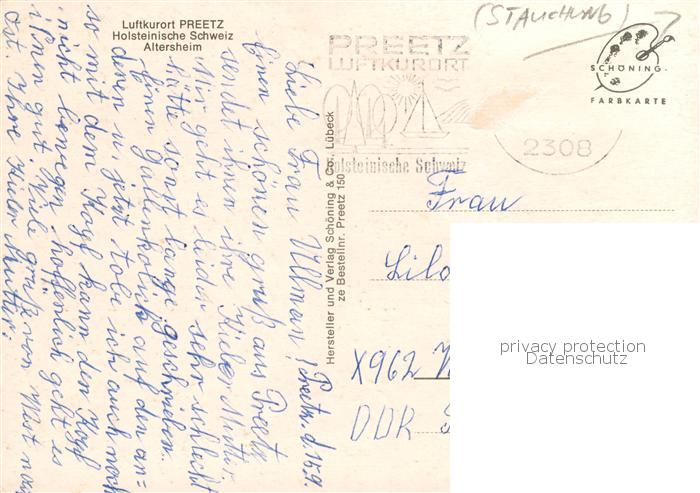 Luftkurort PREETZ
Holsteinische Schweiz
Altersheim
(STAUCHUNG)
PREETZ
LUFTKURORT
Holsteinische Schweiz
2308
SCHÖNING-
FARBKARTE
Hersteller und Verlag Schöning & Co., Lübeck
ze Bestellnr. Preetz 150
Preetz, d. 15.9.
Liebe Frau Ullman!
Einen schönen gruß aus Preetz
sendet ihnen ihre Kieler Mutter
Mir geht es leider sehr schlecht
hätte sonst lange geschrieben.
Einen Gallenkolick auf den an=
deren u jetzt tobe ich auch noch
so mit dem Kopf kann den Kopf
nicht bewegen. hoffenlich geht es
ißnen gut. Viele grüße von West nach
Ost. Ihre Kieler Mutter.
Frau
Lilo
X962
DDR
privacy protection
Datenschutz